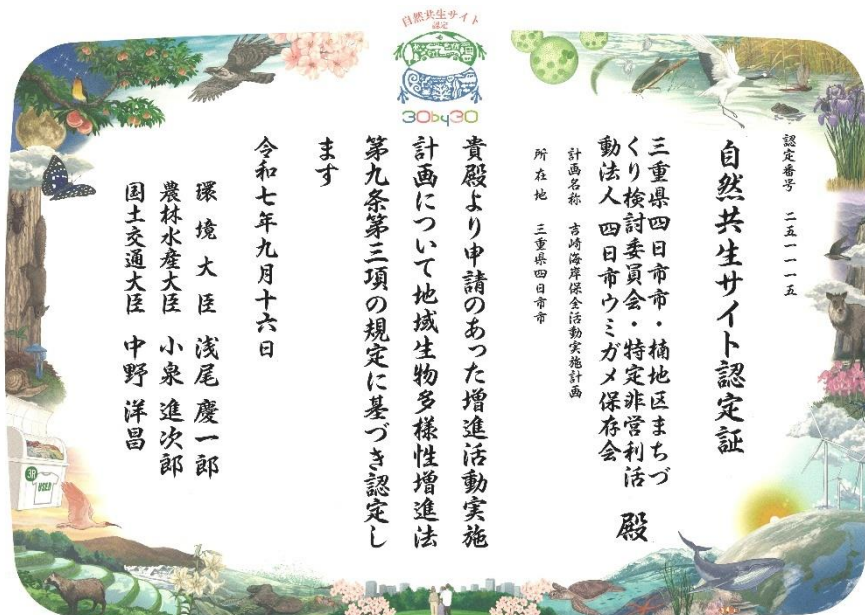 自然共生サイト
認定
30by30
認定番号 二五一一一五
自然共生サイト認定証
三重県四日市市・楠地区まちづ
くり検討委員会・特定非営利活
動法人 四日市ウミガメ保存会 殿
計画名称 吉崎海岸保全活動実施計画
所在地 三重県四日市市
貴殿より申請のあった増進活動実施
計画について地域生物多様性増進法
第九条第三項の規定に基づき認定し
ます
令和七年九月十六日
環境大臣 浅尾慶一郎
農林水産大臣 小泉進次郎
国土交通大臣 中野洋昌
3R
USED